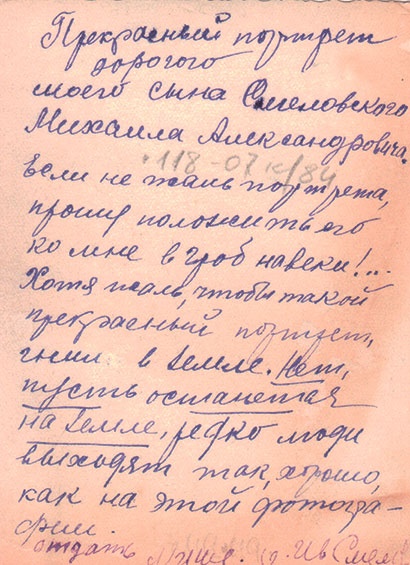 Прекрасный портрет
дорогого
моего сына Смеловского
Михаила Александровича.
118-07 к/84
Если не жаль портрета,
прошу положить его
ко мне в гроб навеки!...
Хотя жаль, чтобы такой
прекрасный портрет,
гнил в земле. Нет,
пусть останется
на земле, редко люди
выходят так хорошо,
как на этой фотогра-
фии.
отдать Мише.